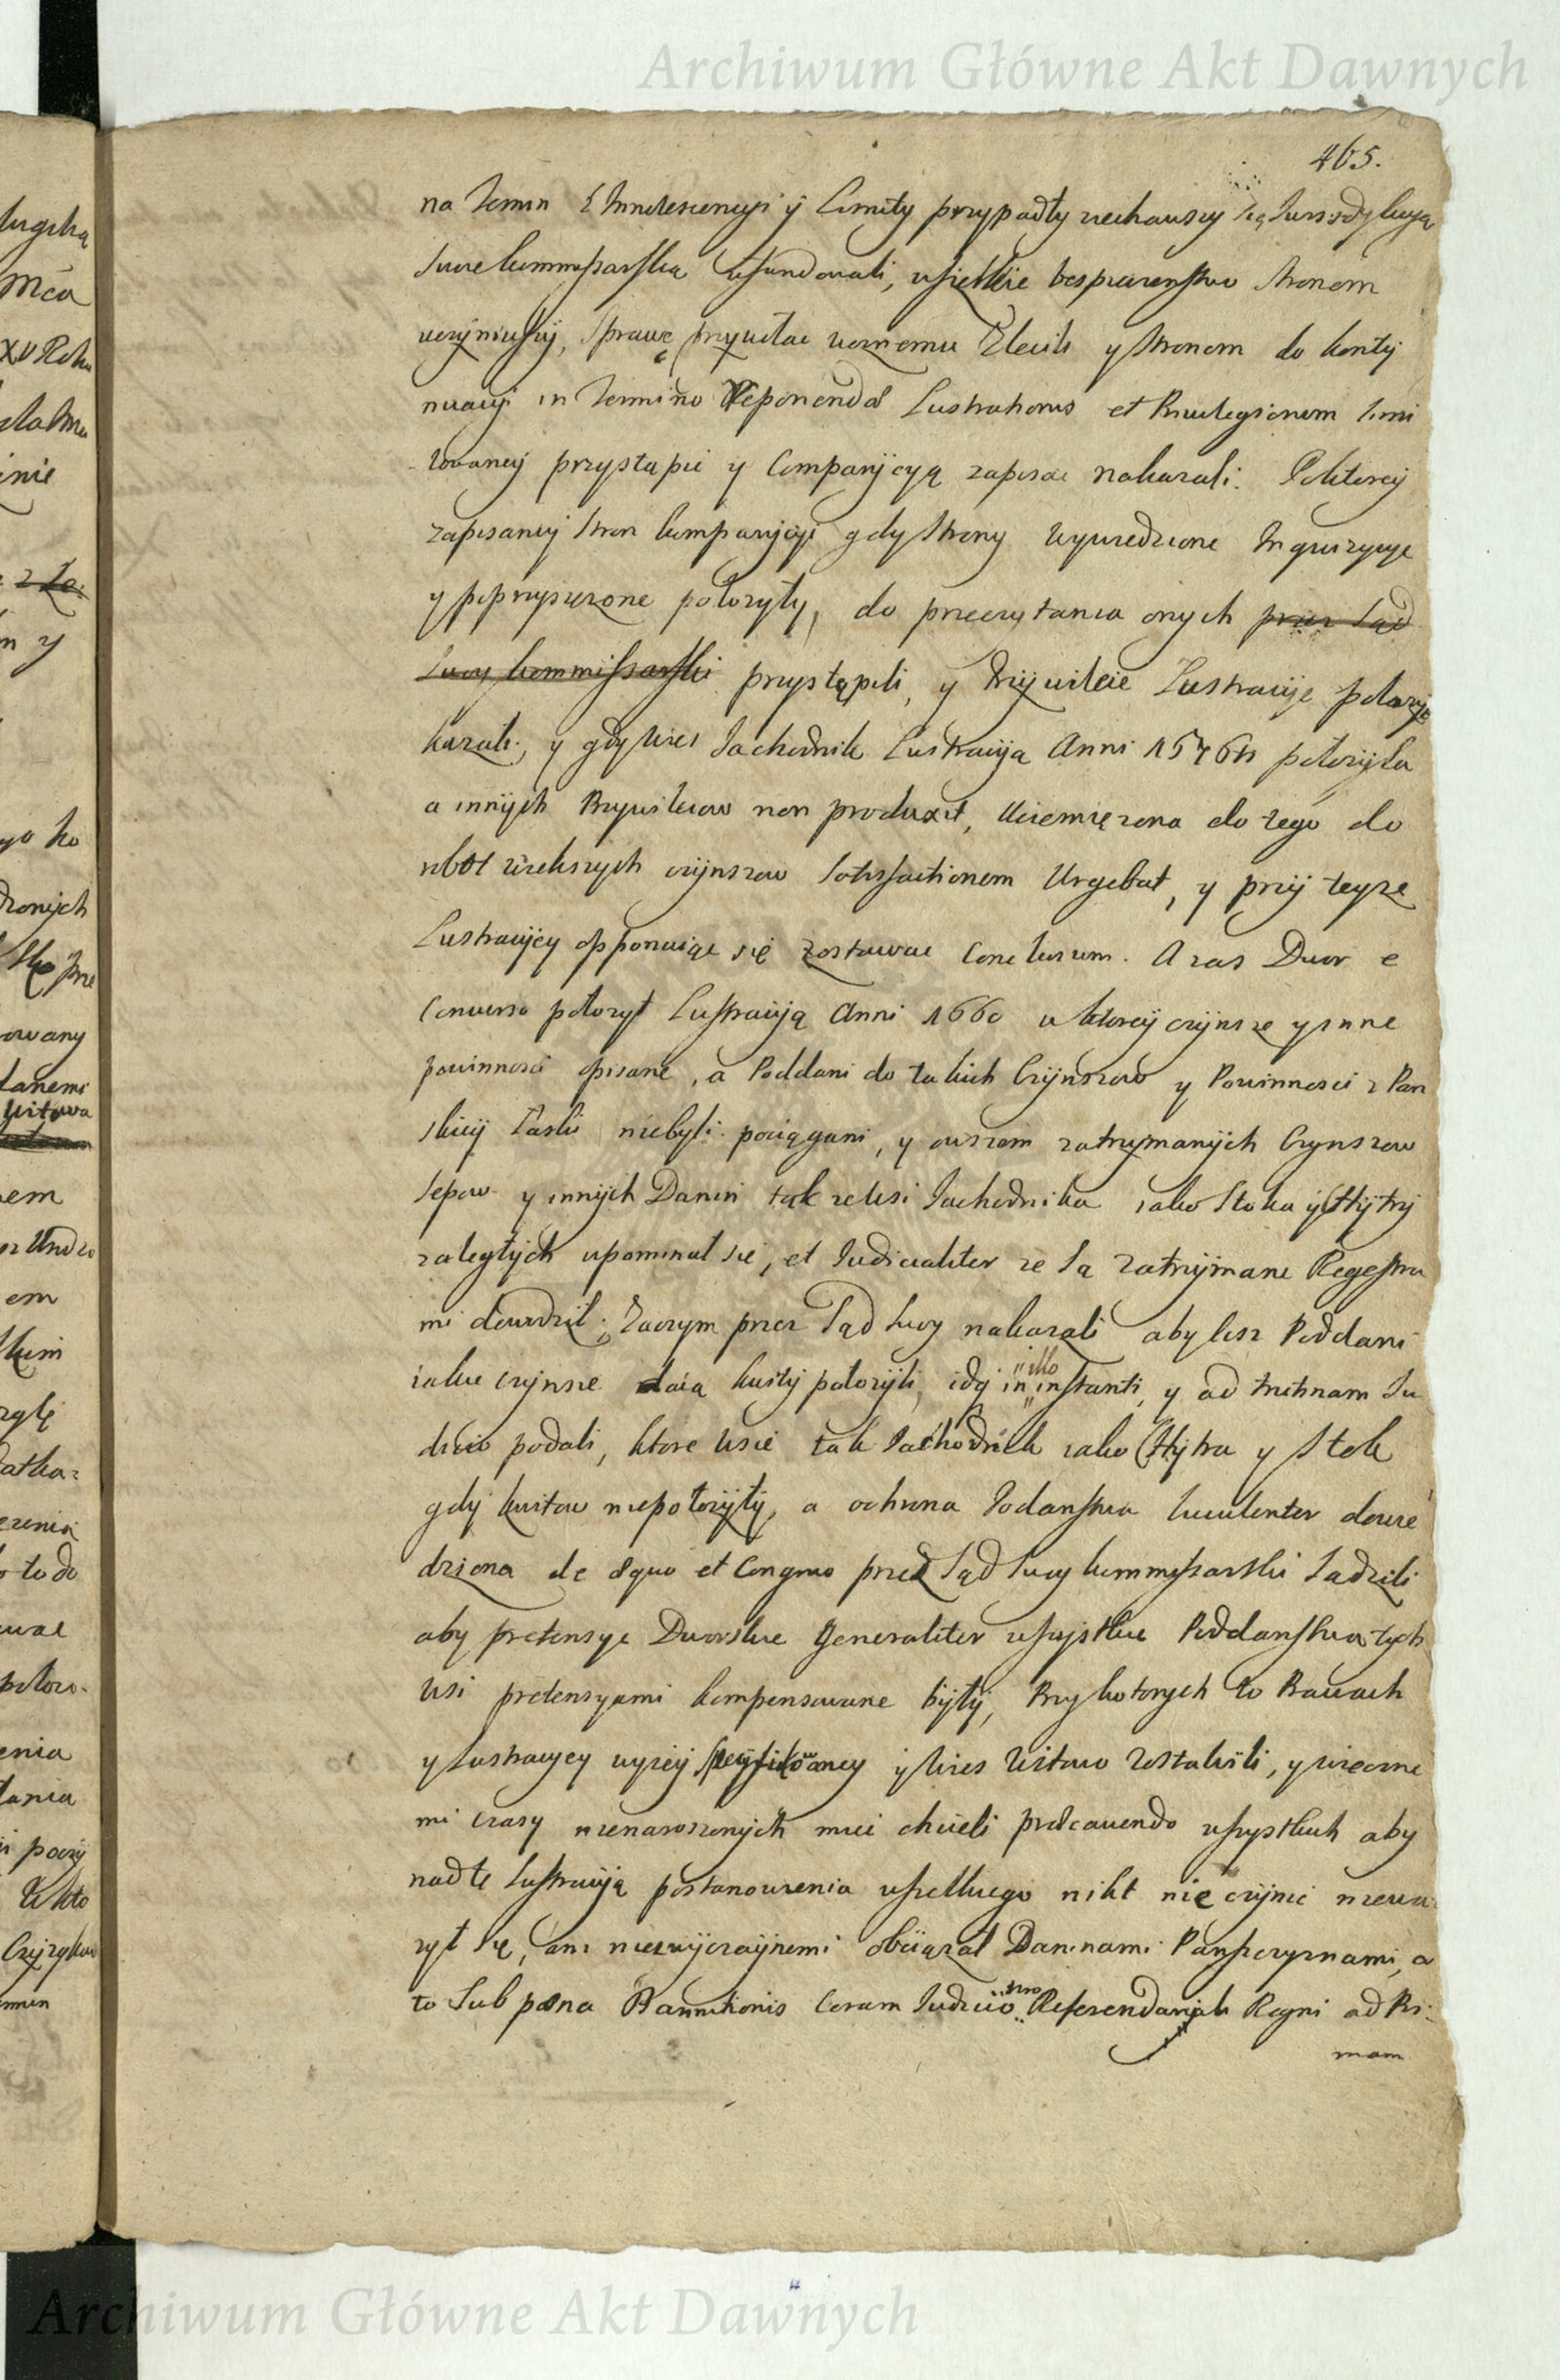 Archiwum Główne Akt Dawnych
465.
na Termin y Limity przypadły ziechawszy się Jurisdykcyą
swoie kommissarską ufundowali, wszelkie bespieczenstwo stronom
uczyniwszy, sprawę przywołac woznemu zlecili y stronom do konty
nuacyi in Termino Reponendae Lustrationis et Privilegiorum limi
towaney przystąpic y Comparycyą zapisac nakazali. Poktorey
zapisaney stron komparycyi gdy strony wywiedzione Inquizycye
y poprzysiężone położyły, do przeczytania onych przez Sąd
swoy kommissarski przystąpili, y Przywileie Lustracyje położyc
kazali, y gdy wies Jachodnik Lustracyją Anni 1576ti położyła
a innych Przywileiow non produxit, Uciemiężona do tego do
robot większych czynszow Satisfactionem Urgebat, y przy teyże
Lustracyey opponuiąc się zostawac conclusum. A zas Dwor e
converso położył Lustracyją Anni 1660 w ktorey czynsze y inne
powinnosci opisane, a Poddani do takich Czynszow y Powinnosci z Pan
skiey Łaski niebyli pociągani, y owszem zatrzymanych Czynszow
Sepow y innych Danin tak ze wsi Jachodnika iako Stoka y Hytry
zaległych upominał się, et Judicialiter ze są zatrzymane Regestra
mi dowodził; Zaczym przez Sąd swoy nakazali aby ciz Poddani
iakie czynsze daią kwity położyli, idq in illo instanti, y ad trutinam Ju
dicio podali, ktore wsie tak Jachodnik iako Hytra y Stok
gdy kwitow niepołożyły, a ochrona Podanstwa luculenter dowie
dziona de aequo et Congruo przez Sąd swoy kommissarski Sądzili
aby pretensye Dworskie Generaliter wszystkie Poddanstwa tych
wsi pretensyami kompensowane były, Przy kotorych to Prawach
y Lustracyey wyżey specyfikowaney y wies Witowo zostawili, y wieczne
mi czasy nienaroszonych miec chcieli praecavendo wszystkich aby
nad tę Lustracyją postanowienia wszelkiego nikt nie czynic niewa
zył się, ani niezwyczaynemi obciązał Daninami Panszczyznami, a
to Sub paena Bannitionis Coram Judicio suo Referendarjali Regni ad Pri
mam
Archiwum Główne Akt Dawnych